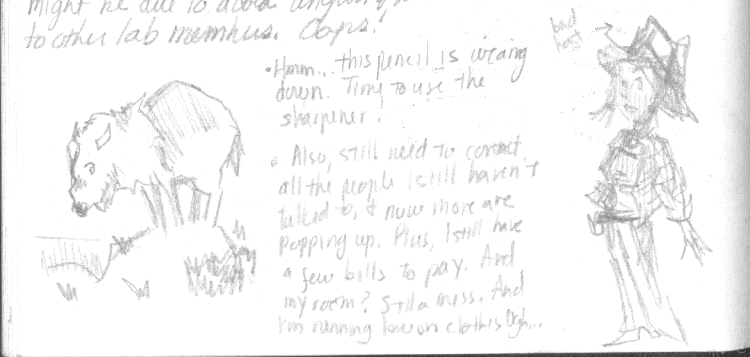 might be due to
to other lab members. Oops!
bad
hat
• Hmm... this pencil is wearing
down. Time to use the
sharpener!
• Also, still need to contact
all the people I still haven't
talked to, & now more are
popping up. Plus, I still have
a few bills to pay. And
my room? Still a mess. And
I'm running low on clothes Ugh...